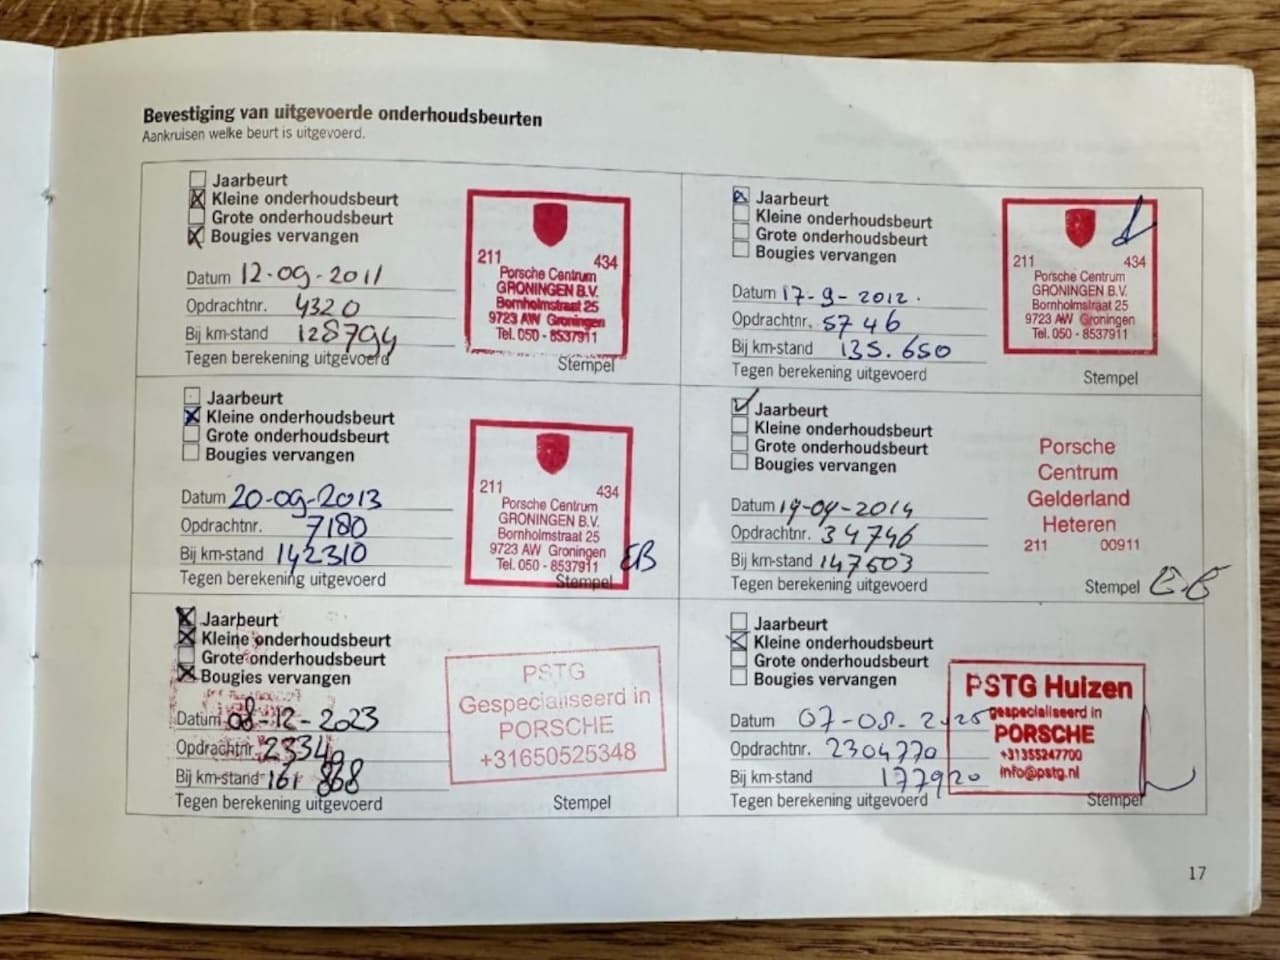 Bevestiging van uitgevoerde onderhoudsbeurten
Aankruisen welke beurt is uitgevoerd.
Jaarbeurt
Kleine onderhoudsbeurt
Grote onderhoudsbeurt
Bougies vervangen
Datum 12-09-2011
Opdrachtnr. 4320
Bij km-stand 128794
Tegen berekening uitgevoerd
211 434
Porsche Centrum
GRONINGEN B.V.
Bornholmstraat 25
9723 AW Groningen
Tel. 050 - 8537911
Stempel
Jaarbeurt
Kleine onderhoudsbeurt
Grote onderhoudsbeurt
Bougies vervangen
Datum 17-9-2012.
Opdrachtnr. 5746
Bij km-stand 135.650
Tegen berekening uitgevoerd
211 434
Porsche Centrum
GRONINGEN B.V.
Bornholmstraat 25
9723 AW Groningen
Tel. 050 - 8537911
Stempel
Jaarbeurt
Kleine onderhoudsbeurt
Grote onderhoudsbeurt
Bougies vervangen
Datum 20-09-2013
Opdrachtnr. 7180
Bij km-stand 142310
Tegen berekening uitgevoerd
211 434
Porsche Centrum
GRONINGEN B.V.
Bornholmstraat 25
9723 AW Groningen
Tel. 050 - 8537911
Stempel
EB
Jaarbeurt
Kleine onderhoudsbeurt
Grote onderhoudsbeurt
Bougies vervangen
Datum
Opdrachtnr. 34746
Bij km-stand 147603
Tegen berekening uitgevoerd
Porsche
Centrum
Gelderland
Heteren
211 00911
Stempel
Jaarbeurt
Kleine onderhoudsbeurt
Grote onderhoudsbeurt
Bougies vervangen
Datum 08-12-2023
Opdrachtnr.
Bij km-stand 161 868
Tegen berekening uitgevoerd
PSTG
Gespecialiseerd in
PORSCHE
+31650525348
Stempel
Jaarbeurt
Kleine onderhoudsbeurt
Grote onderhoudsbeurt
Bougies vervangen
Datum 07-08-2025
Opdrachtnr. 2304770
Bij km-stand 177920
Tegen berekening uitgevoerd
PSTG Huizen
gespecialiseerd in
PORSCHE
+31355247700
info@pstg.nl
Stempel
17